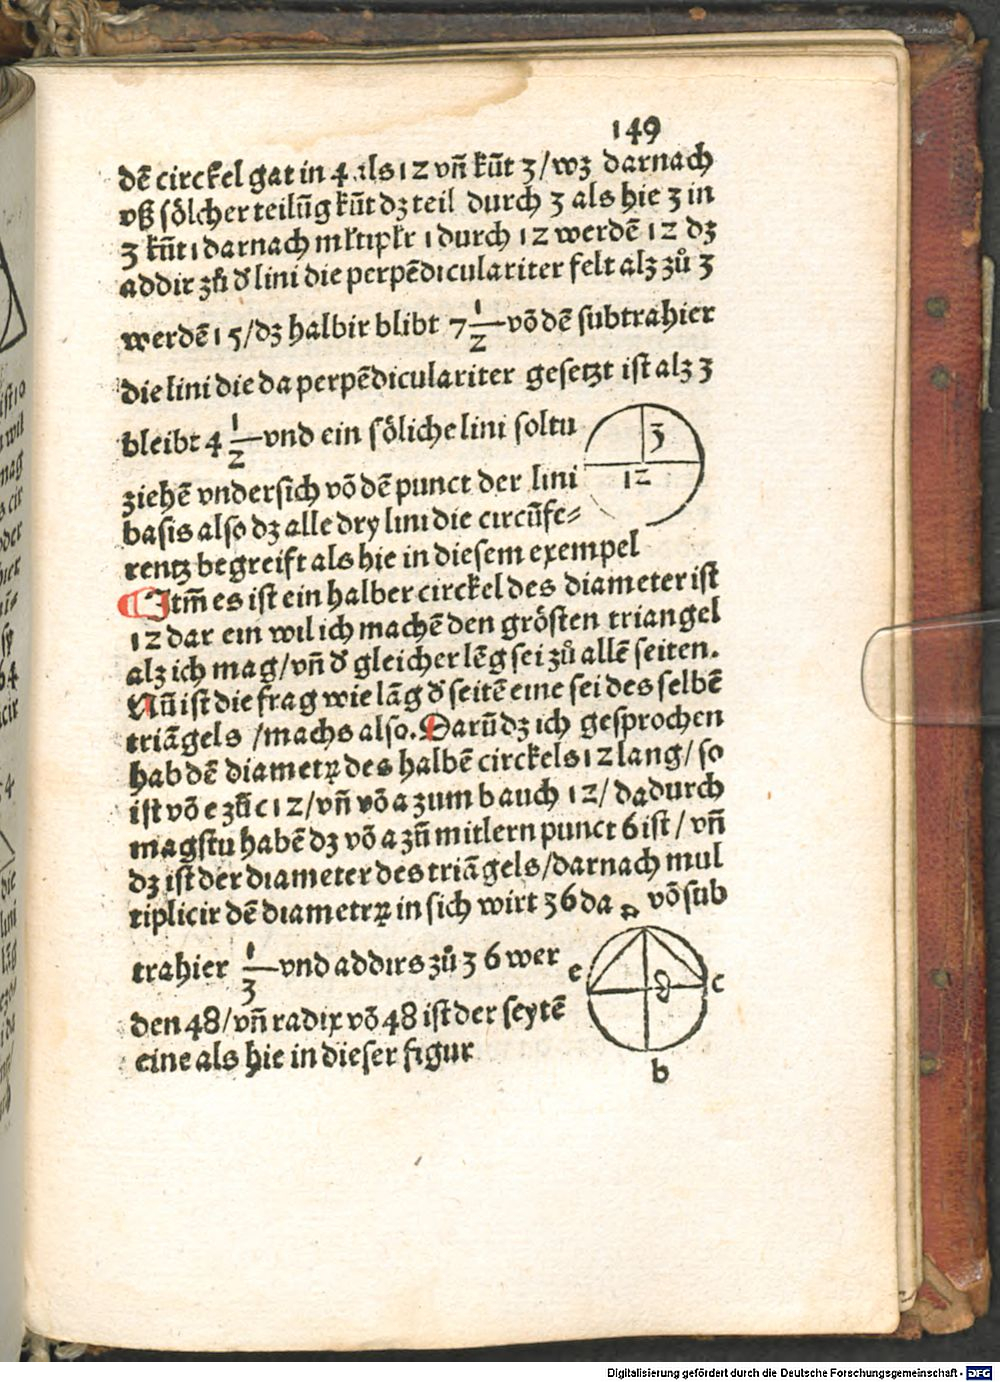 149
dē circkel gat in 4 als 12 vñ kūt 3/wz darnach
vß sölcher teilūg kūt dz teil durch 3 als hie 3 in
3 kūt 1 darnach mltiplr 1 durch 12 werdē 12 dz
addir zū d̕ lini die perpēdiculariter felt alz zů 3
werdē 15/dz halbir blibt 7 1/2 võ dē subtrahier
die lini die da perpēdiculariter gesetzt ist alz 3
bleibt 4 1/2 vnd ein söliche lini soltu
ziehē vndersich võ dē punct der lini
basis also dz alle dry lini die circūfe⸗
rentz begreift als hie in diesem exempel
3
12
Itm̄ es ist ein halber circkel des diameter ist
12 dar ein wil ich machē den grösten triangel
alz ich mag/vñ d̕ gleicher lēg sei zů allē seiten.
Nū ist die frag wie lāg d̕ seitē eine sei des selbē
triāgels /machs also. Darū dz ich gesprochen
hab dē diametꝝ des halbē circkels 12 lang/so
ist võ e zū c 12/vñ võ a zum b auch 12/dadurch
magstu habē dz võ a zū mitlern punct 6 ist/vñ
dz ist der diameter des triāgels/darnach mul
tiplicir dē diametrꝝ in sich wirt 36 da võ sub
trahier 1/3 vnd addirs zů 36 wer
den 48/vñ radix võ 48 ist der seytē
eine als hie in dieser figur
e
c
b
Digitalisierung gefördert durch die Deutsche Forschungsgemeinschaft - DFG